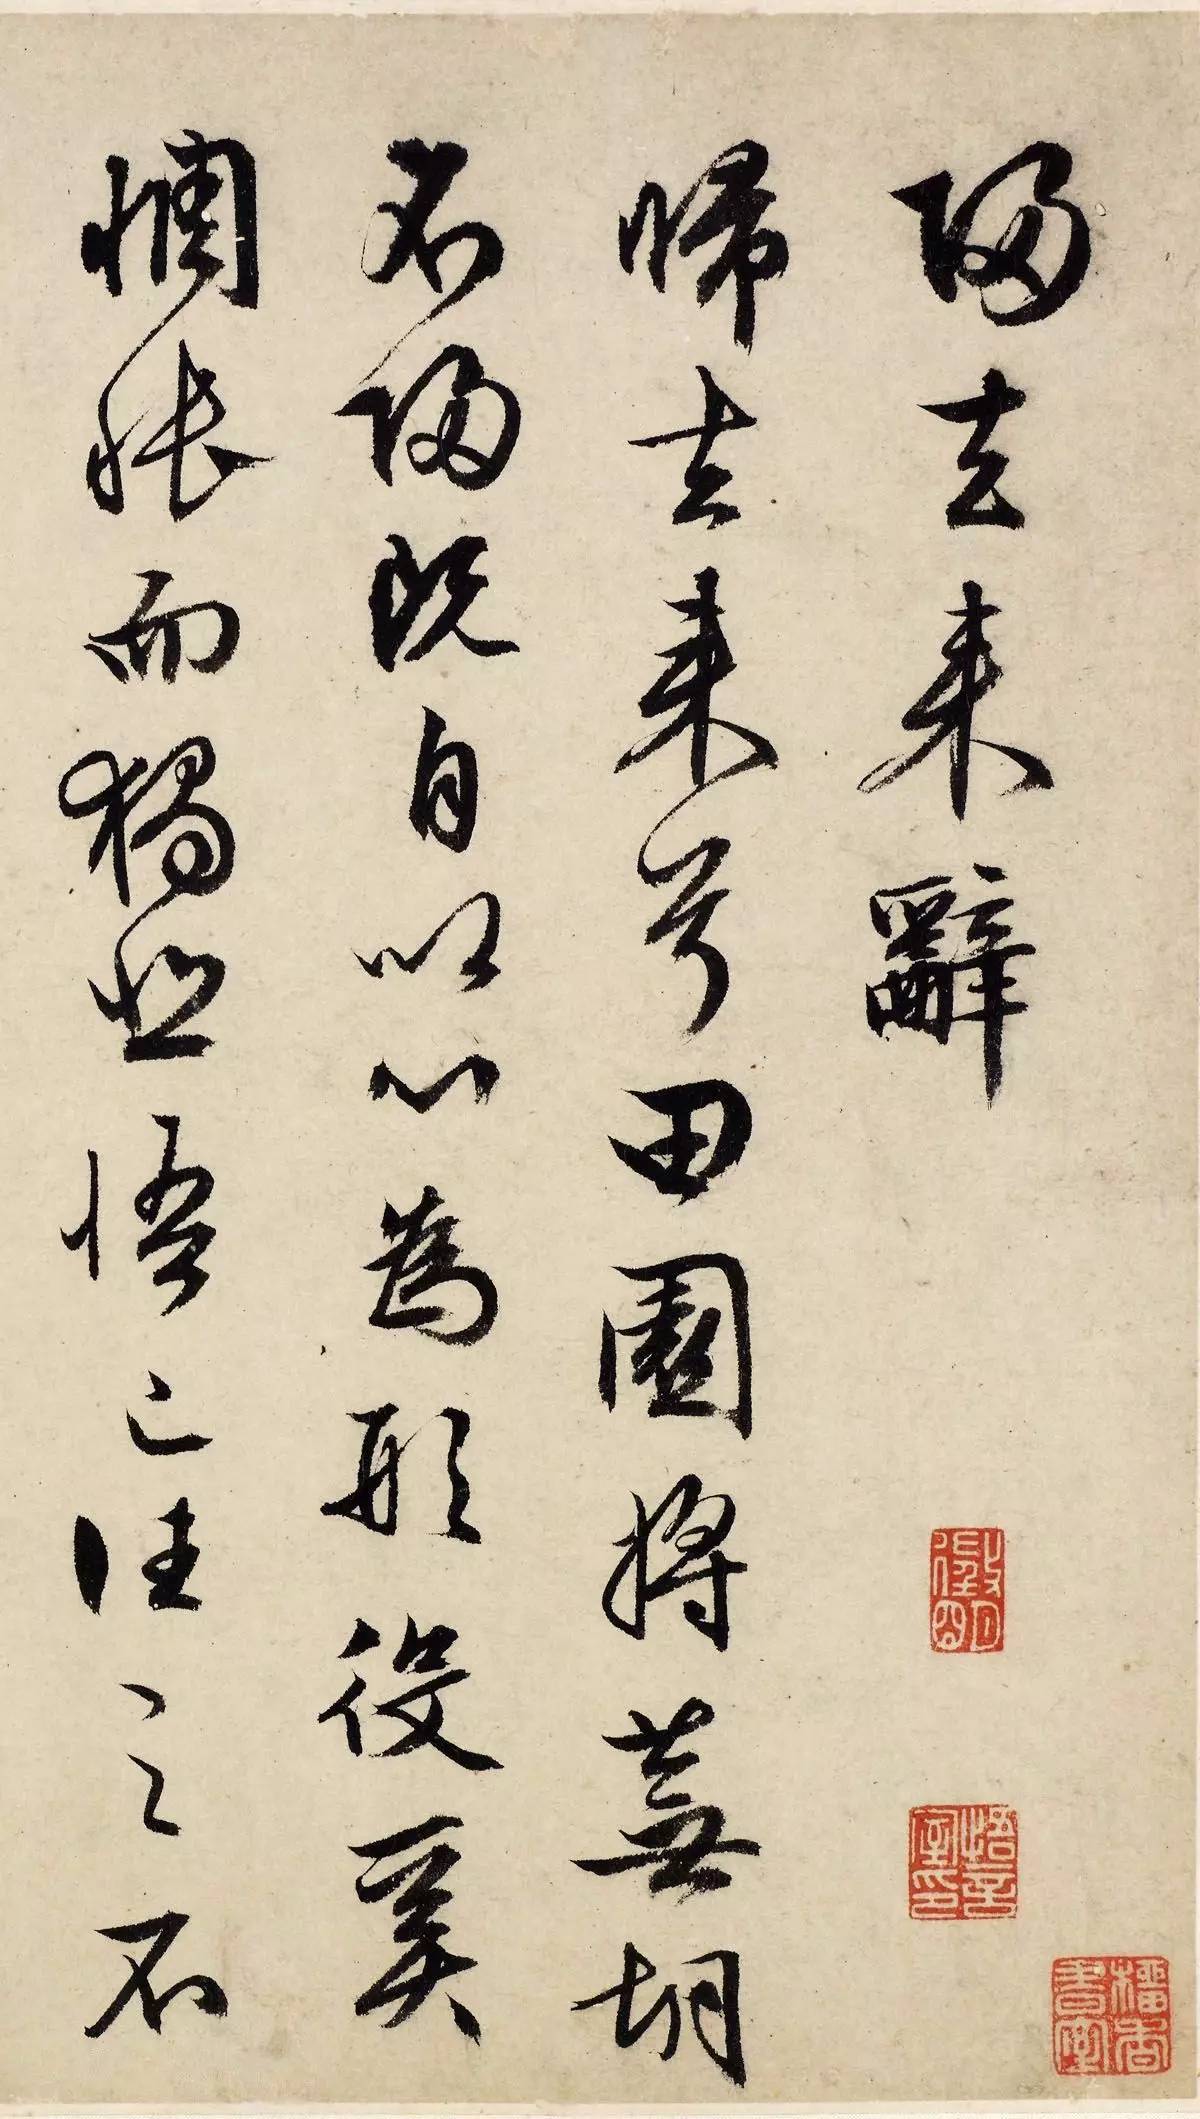 歸去來辭
歸去來兮田園將蕪胡
不歸既自以心為形役奚
惆悵而獨悲悟已往之不
徵明
悟言室印